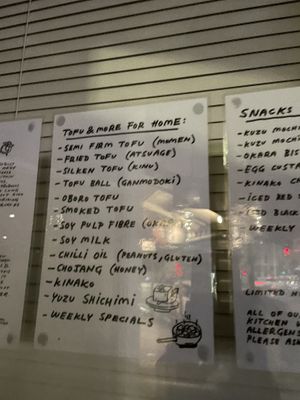 TOFU & MORE FOR HOME:
- SEMI FIRM TOFU (MOMEN)
- FRIED TOFU (ATSUAGE)
- SILKEN TOFU (KINU)
- TOFU BALL (GANMODOKI)
- OBORO TOFU
- SMOKED TOFU
- SOY PULP FIBRE
- SOY MILK
- CHILLI OIL (PEANUTS, GLUTEN)
- CHOJANG (HONEY)
- KINAKO
- YUZU SHICHIMI
- WEEKLY SPECIALS
SNACKS
- KUZU MOCHI
- KUZU MOCHI
- OKARA
- EGG
- KINAKO
- ICED RED
- ICED BLACK
- WEEKLY
LIMITED
ALL OF
KITCHEN
ALLERGENS
PLEASE